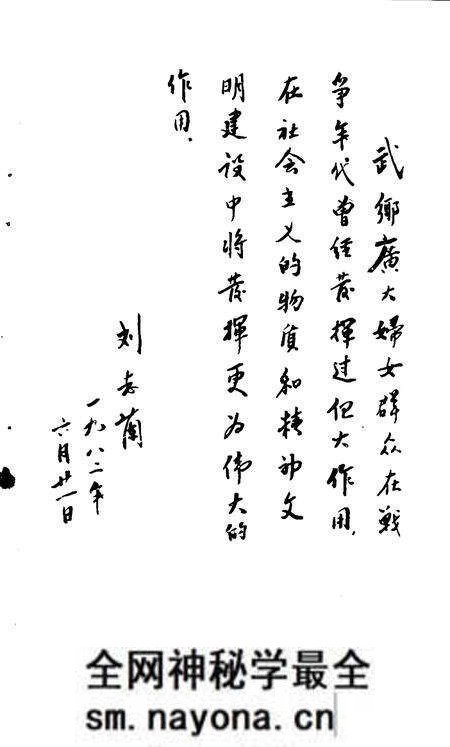 武鄉廣大婦女群众在戰
争年代曾经發揮过但大作用,
在社会主义的物质和精神文
明建设中将發揮更为伟大的
作用.
刘志蘭
一九八二年
六月廿一日
全网神秘学最全
sm.nayona.cn